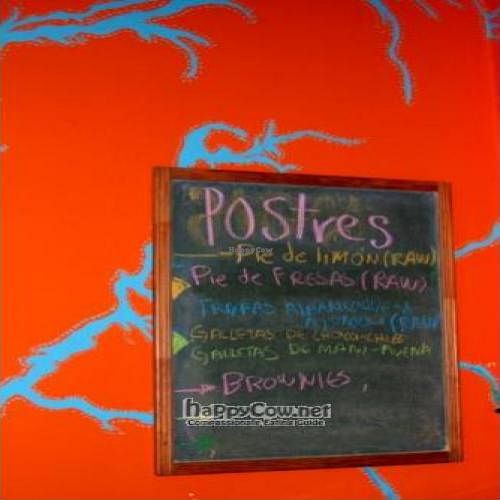 POStres
PIE de limón (RAW)
PIE de FRESAS (RAW)
(RAW)
GALLETAS DE
GALLETAS DE MANI - AVENA
BROWNIES
HappyCow
happyCow.net
Compassionate Eating Guide